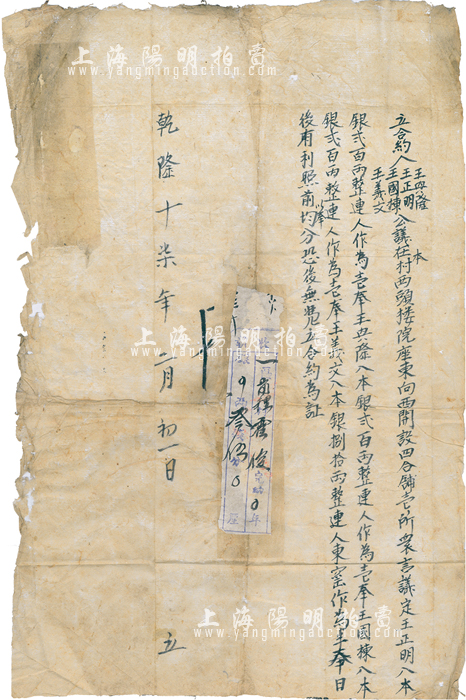 上海陽明拍賣
www.yangmingauction.com
立合約人王興隆王正明王國棟王美文公議在本村西頭楼院座東向西開設四合舖壱所衆言議定王正明入本
銀弍百両整連人作為壱奉王興隆入本銀弍百両整連人作為壱奉王國棟入本
銀弍百両整連人作為壱奉王美文入本銀捌拾両整連人東窑作為半奉日
後有利照前均分恐後無凴立合約為証
乾隆十柒年 月初一日 立
上海陽明拍賣
www.yangmingauction.com
上海陽明拍賣
www.yangmingauction.com